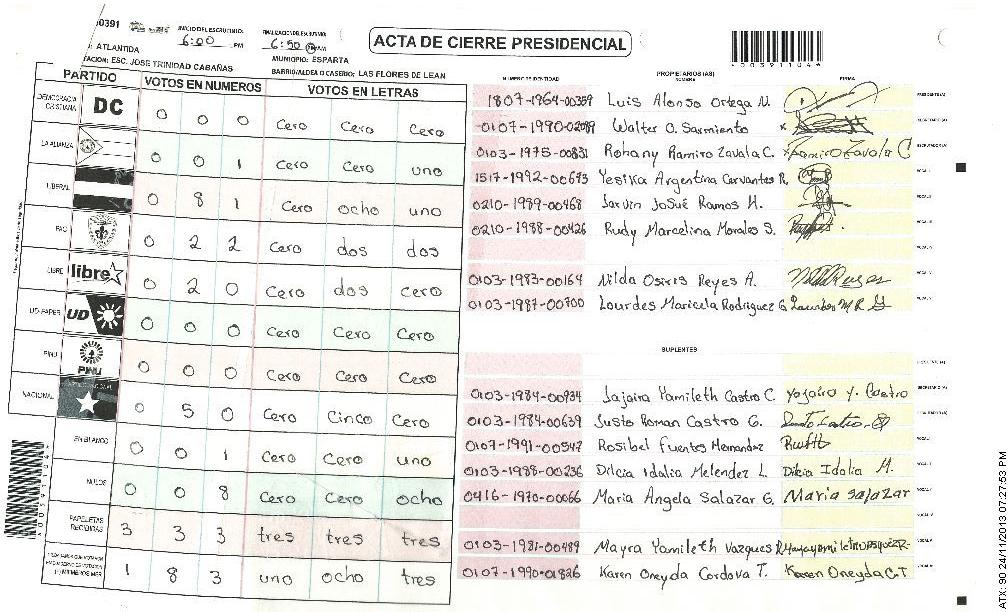 00391
INICIO DEL ESCRUTINIO: FINALIZACION DEL ESCRUTINIO:
6:00 PM 6:50 AM
ACTA DE CIERRE PRESIDENCIAL
0003911044
: ATLANTIDA MUNICIPIO: ESPARTA
TACION: ESC. JOSE TRINIDAD CABAÑAS BARRIO/ALDEA O CASERIO: LAS FLORES DE LEAN
PARTIDO VOTOS EN NUMEROS VOTOS EN LETRAS
DEMOCRACIA CRISTIANA DC 0 0 0 Cero Cero Cero
LA ALIANZA 0 0 1 Cero Cero uno
LIBERAL 0 8 1 Cero ocho uno
PAC 0 2 2 Cero dos dos
LIBRE libre 0 2 0 Cero dos cero
UD-FAPER UD 0 0 0 Cero Cero Cero
PINU PINU 0 0 0 Cero Cero Cero
NACIONAL 0 5 0 Cero Cinco Cero
EN BLANCO 0 0 1 Cero Cero uno
NULOS 0 0 8 Cero Cero ocho
PAPELETAS RECIBIDAS 3 3 3 tres tres tres
1 8 3 uno ocho tres
NUMERO DE IDENTIDAD PROPIETARIOS (AS) NOMBRE FIRMA
1807-1964-00359 Luis Alonso Ortega M. PRESIDENTE(A)
0107-1990-02089 Walter O. Sarmiento SECRETARIO(A)
0103-1975-00831 Rohany Ramiro Zavala C. Ramiro Zavala C ESCRUTADOR(A)
1517-1992-00673 Yesika Argentina Cervantes R. VOCAL I
0210-1989-00468 Jarvin Josué Ramos H. VOCAL II
0210-1988-00426 Rudy Marcelina Morales S. VOCAL III
VOCAL IV
0103-1983-00164 Nilda Osiris Reyes A. VOCAL V
0103-1987-00700 Lourdes Maricela Rodriguez G. Lourdes M R G VOCAL VI
SUPLENTES
PRESIDENTE (A)
0103-1984-00934 Jajaira Yamileth Castro C. SECRETARIO (A)
0103-1984-00639 Justo Roman Castro G. ESCRUTADOR (A)
0107-1991-00547 Rosibel Fuentes Hernandez VOCAL I
0103-1988-00236 Dilcia Idalia Melendez L. Dilcia Idalia M. VOCAL II
0416-1970-00066 Maria Angela Salazar G. Maria Salazar
0103-1981-00489 Mayra Yamileth Vazquez R.
0107-1990-01826 Karen Oneyda Cordova T. Karen Oneyda C.T
ATX: 90 24/11/2013 07:27:53 PM